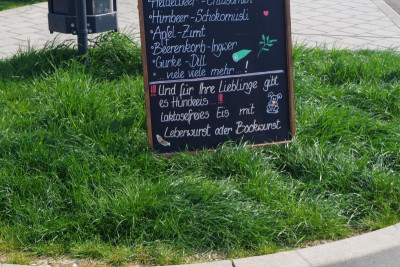 ·Himbeer-Schokomüsli
·Apfel-Zimt
·Beerenkorb-Ingwer
·Gurke-Dill
...viele viele mehr...
!!Und für Ihre Lieblinge gibt
es Hundeeis!!
laktosefreies Eis mit
Leberwurst oder Bockwurst